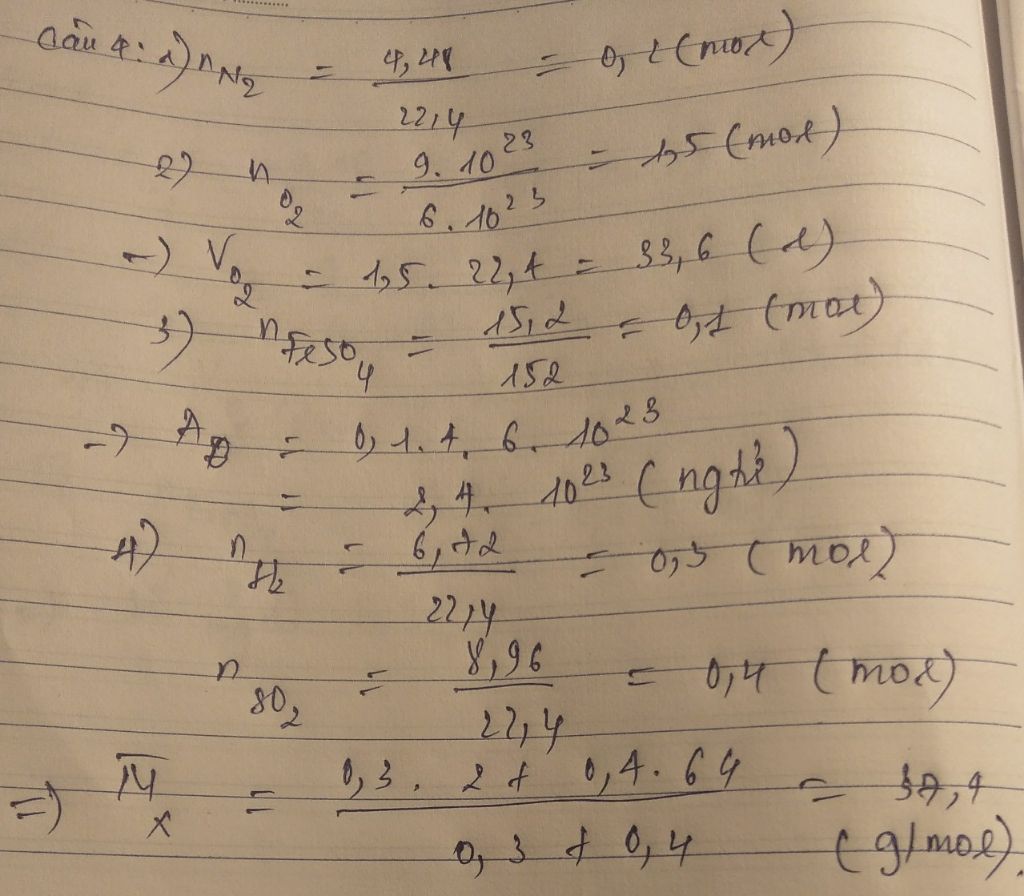 Câu 4: 1) nN2 = 4,48 / 22,4 = 0,2 (mol)
2) nO2 = 9.10^23 / 6.10^23 = 1,5 (mol)
-) VO2 = 1,5. 22,4 = 33,6 (l)
3) nFeSO4 = 15,2 / 152 = 0,1 (mol)
-) AO = 0,1.4. 6. 10^23
= 2,4. 10^23 (ngtử)
4) nH2 = 6,72 / 22,4 = 0,3 (mol)
nSO2 = 8,96 / 22,4 = 0,4 (mol)
=) M̅x = 0,3. 2 + 0,4. 64 / 0,3 + 0,4 = 37,4
(g/mol).